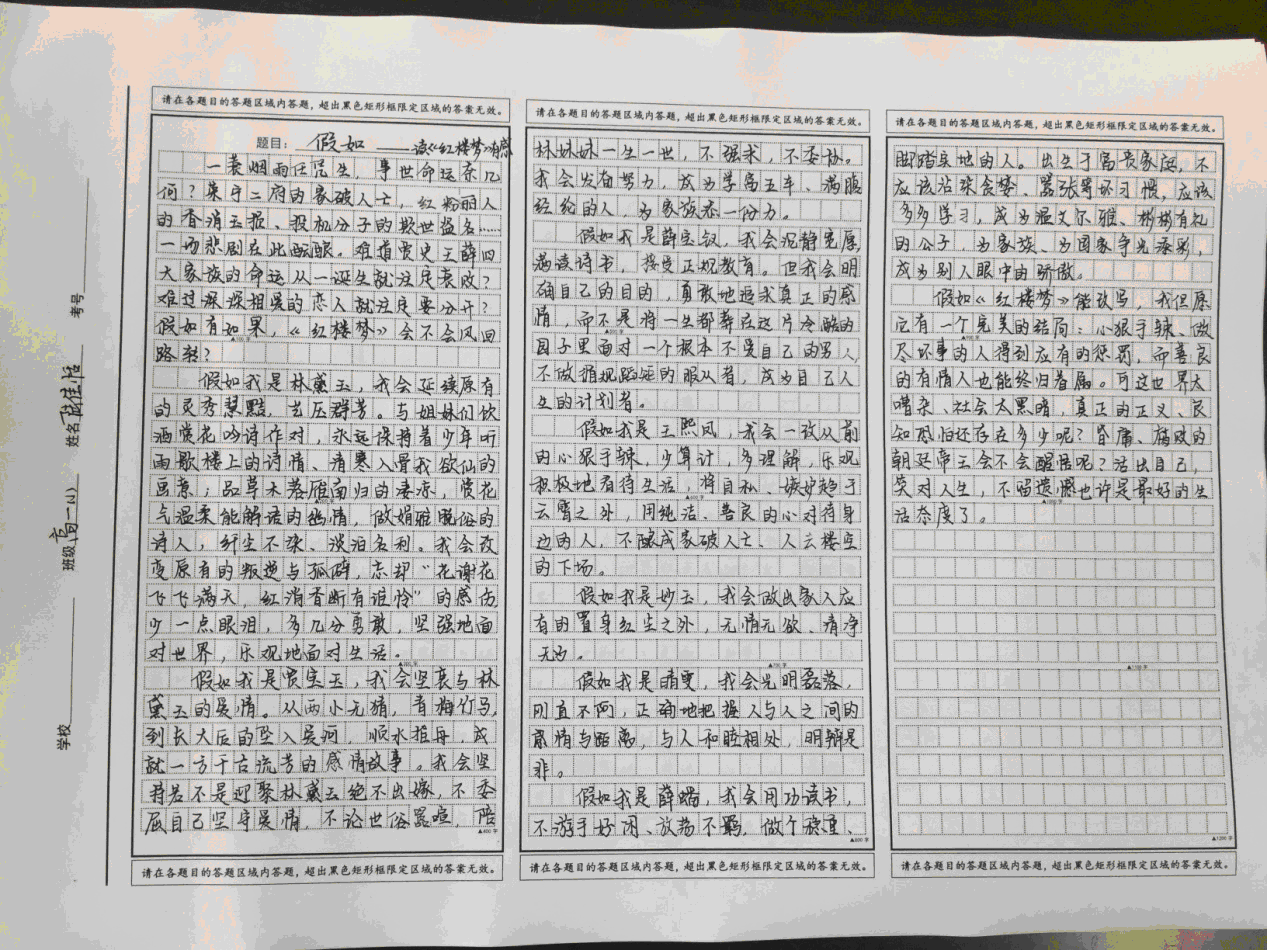 学校
班级 高一(2)
姓名
考号
请在各题目的答题区域内答题，超出黑色矩形框限定区域的答案无效。
题目： 假如 ——读《红楼梦》有感
一蓑烟雨任凭生，事世命运奈几
何？荣宁二府的家破人亡，红粉丽人
的香消玉损、投机分子的欺世盗名……
一场悲剧在此酝酿。难道贾史王薛四
大家族的命运从一诞生就注定衰败？
难过深深相爱的恋人就注定要分开？
假如有如果，《红楼梦》会不会风回
路转？
假如我是林黛玉，我会延续原有
的灵秀慧黠，艺压群芳。与姐妹们饮
酒赏花吟诗作对，永远保持着少年听
雨歌楼上的诗情、清寒入骨我欲仙的
画意；品草木落雁南归的凄凉，赏花
气温柔能解语的幽情，做娟雅脱俗的
诗人，纤尘不染、淡泊名利。我会改
变原有的叛逆与孤僻，忘却“花谢花
飞飞满天，红消香断有谁怜”的感伤
少一点眼泪，多几分勇敢，坚强地面
对世界，乐观地面对生活。
▲200字
假如我是贾宝玉，我会坚衷与林
黛玉的爱情。从两小无猜，青梅竹马，
到长大后的坠入爱河，顺水推舟，成
就一方千古流芳的感情故事。我会坚
持若不是迎娶林黛玉绝不出嫁，不委
屈自己坚守爱情，不论世俗嚣喧，陪
▲400字
请在各题目的答题区域内答题，超出黑色矩形框限定区域的答案无效。
请在各题目的答题区域内答题，超出黑色矩形框限定区域的答案无效。
林妹妹一生一世，不强求，不妥协。
我会发奋努力，成为学富五车、满腹
经纶的人，为家族添一份力。
假如我是薛宝钗，我会沉静宽厚，
满读诗书，接受正规教育。但我会明
确自己的目的，勇敢地追求真正的感
情，而不是将一生都葬在这片冷酷的
园子里面对一个根本不爱自己的男人，
不做循规蹈矩的服从者，成为自己人
生的计划者。
假如我是王熙凤，我会一改从前
的心狠手辣，少算计，多理解，乐观
积极地看待生活，将自私、嫉妒趋于
云霄之外，用纯洁、善良的心对待身
边的人，不酿成家破人亡、人去楼空
的下场。
假如我是妙玉，我会做出家人应
有的置身红尘之外，无情无欲、清净
无为。
假如我是晴雯，我会光明磊落，
刚直不阿，正确地把握人与人之间的
感情与距离，与人和睦相处，明辨是
非。
假如我是薛蟠，我会用功读书，
不游手好闲、放荡不羁，做个稳重、
▲800字
请在各题目的答题区域内答题，超出黑色矩形框限定区域的答案无效。
请在各题目的答题区域内答题，超出黑色矩形框限定区域的答案无效。
脚踏实地的人。出生于富贵家庭，不
应该沾染贪婪、嚣张等坏习惯，应该
多多学习，成为温文尔雅、彬彬有礼
的公子，为家族、为国家争光添彩，
成为别人眼中的骄傲。
假如《红楼梦》能改写，我但愿
它有一个完美的结局：心狠手辣、做
尽坏事的人得到应有的惩罚，而善良
的有情人也能终归眷属。可这世界太
嘈杂、社会太黑暗，真正的正义、良
知恐怕还存在多少呢？昏庸、腐败的
朝廷帝王会不会醒悟呢？活出自己，
笑对人生，不留遗憾也许是最好的生
活态度了。
▲1200字
请在各题目的答题区域内答题，超出黑色矩形框限定区域的答案无效。